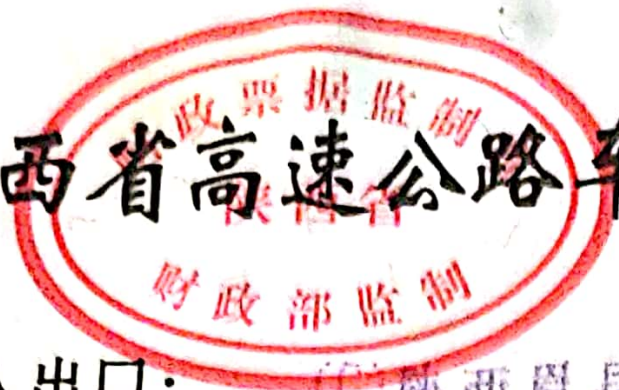 政票据监制
西省高速公路车
陕西省
财政部监制
出口: